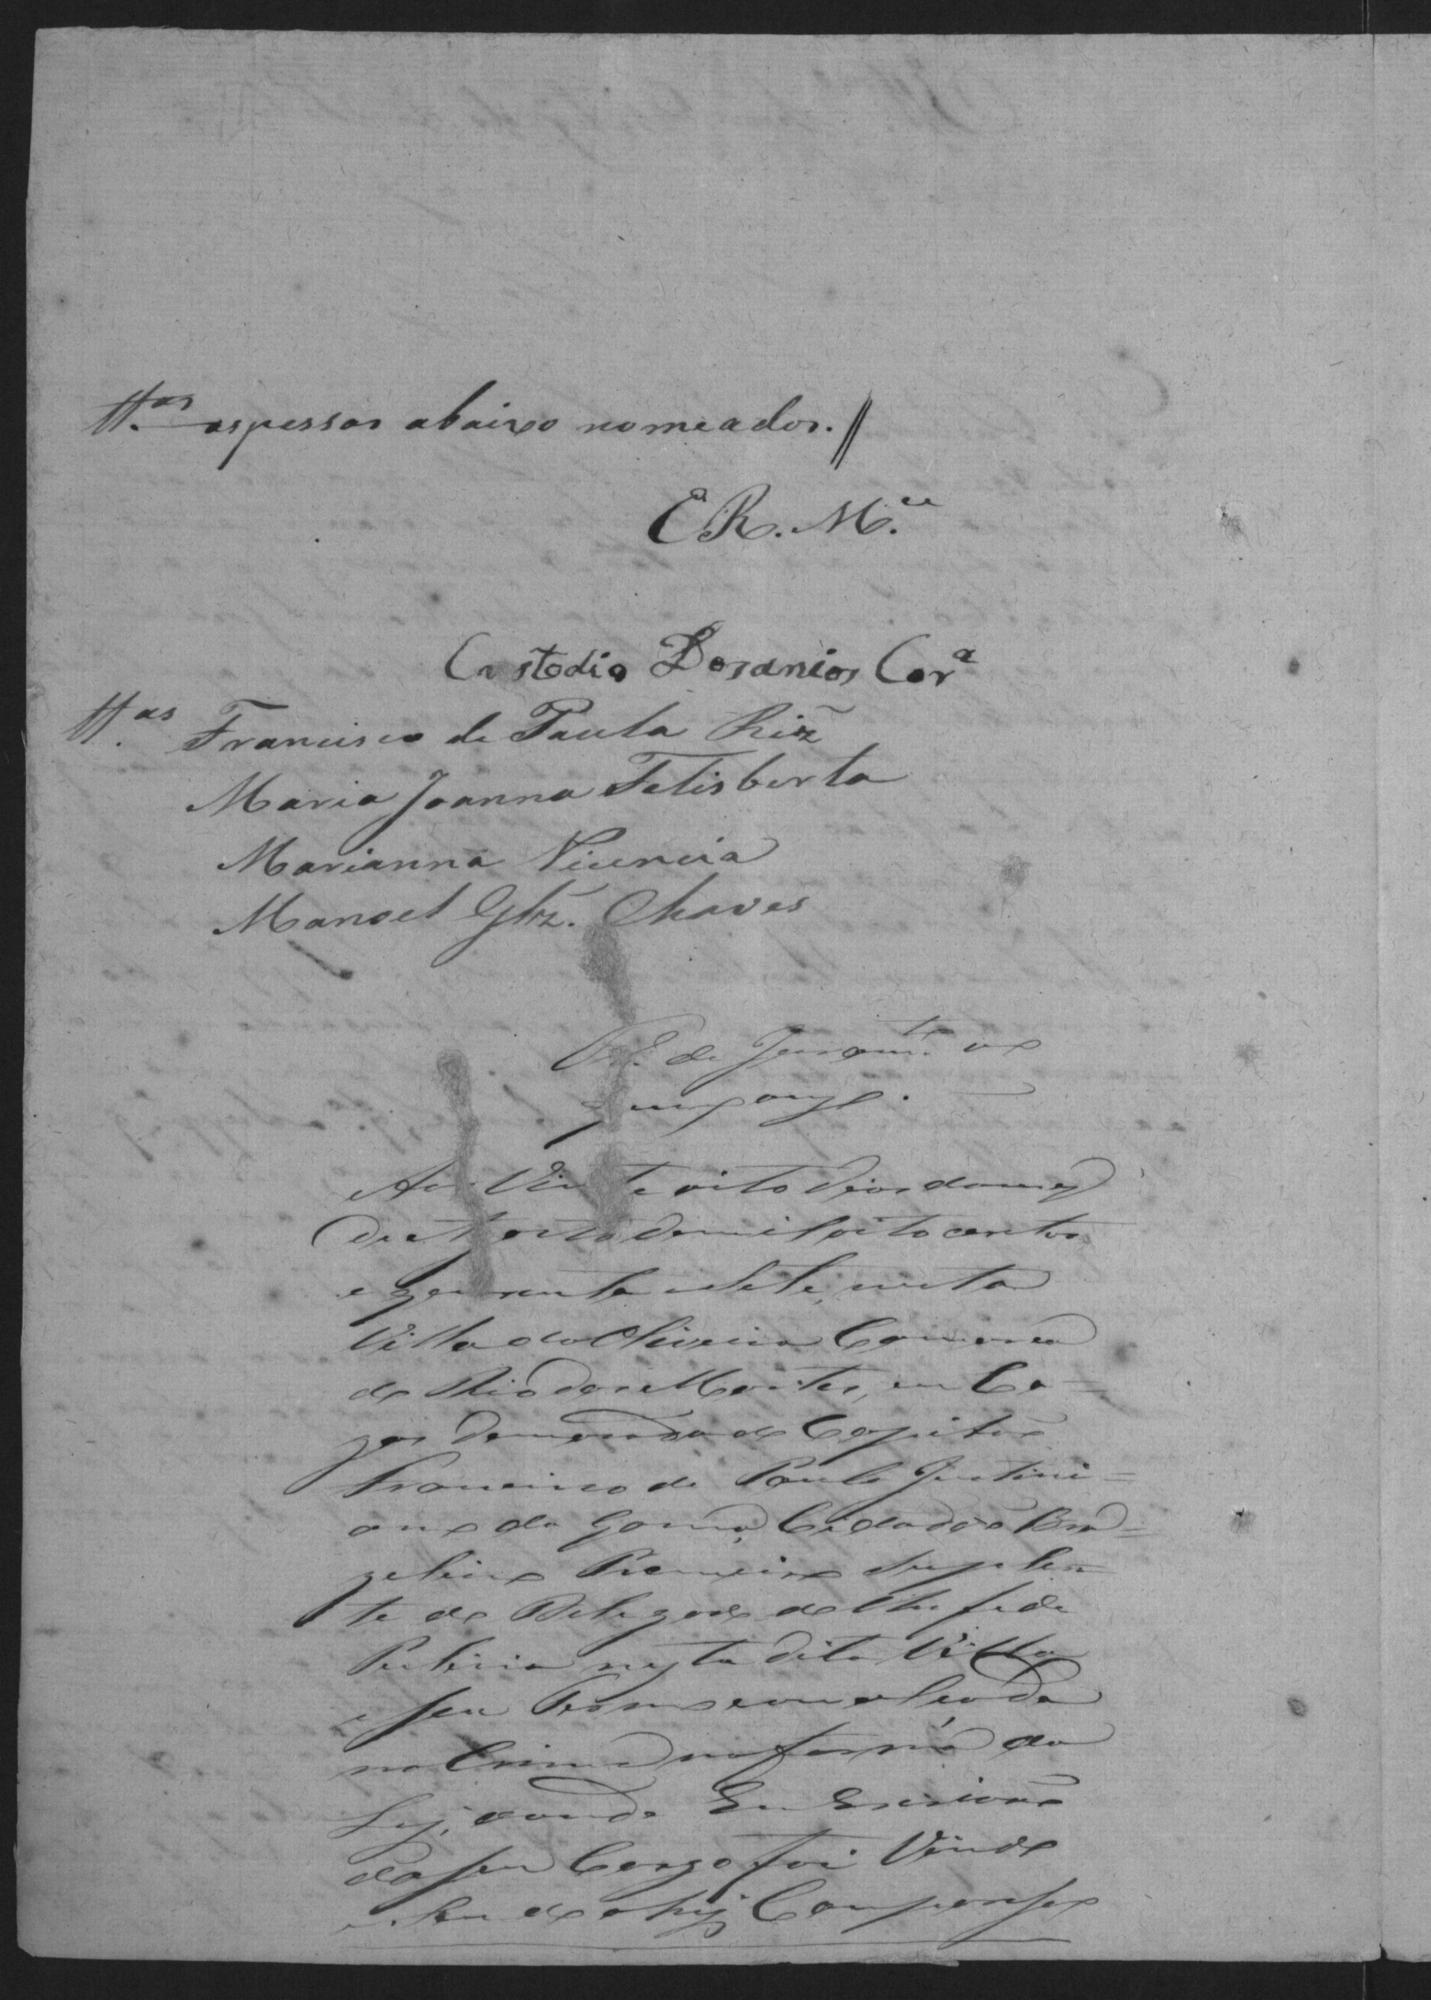 ttas. as pessoas abaixo nomeados. //
E R. M.ce
Custodio Dosanios Cora
ttas. Francisco de Paula Riz
Maria Joanna Felisberta
Marianna Vicencia
Manoel Glz. Chaves
de Juram.to ao
Aos Vinte e oito dias do mez
de Agosto de mil oito centos
e quarenta e sete, nesta
Villa da Oliveira Comarca
do Rio das Mortes, em Ca=
zas de morada do Capitão
Francisco de Paula Justini=
ano da Gama, Cidadão Bra=
zileiro Primeiro Suplen=
te do Delegado do Chefe de
Policia nesta dita Villa
e seu Termo com alçada
no Crime na forma da
Ley, aonde Eu Escrivão
do seu Cargo foi Vindo
e sendo ahy Compareseo